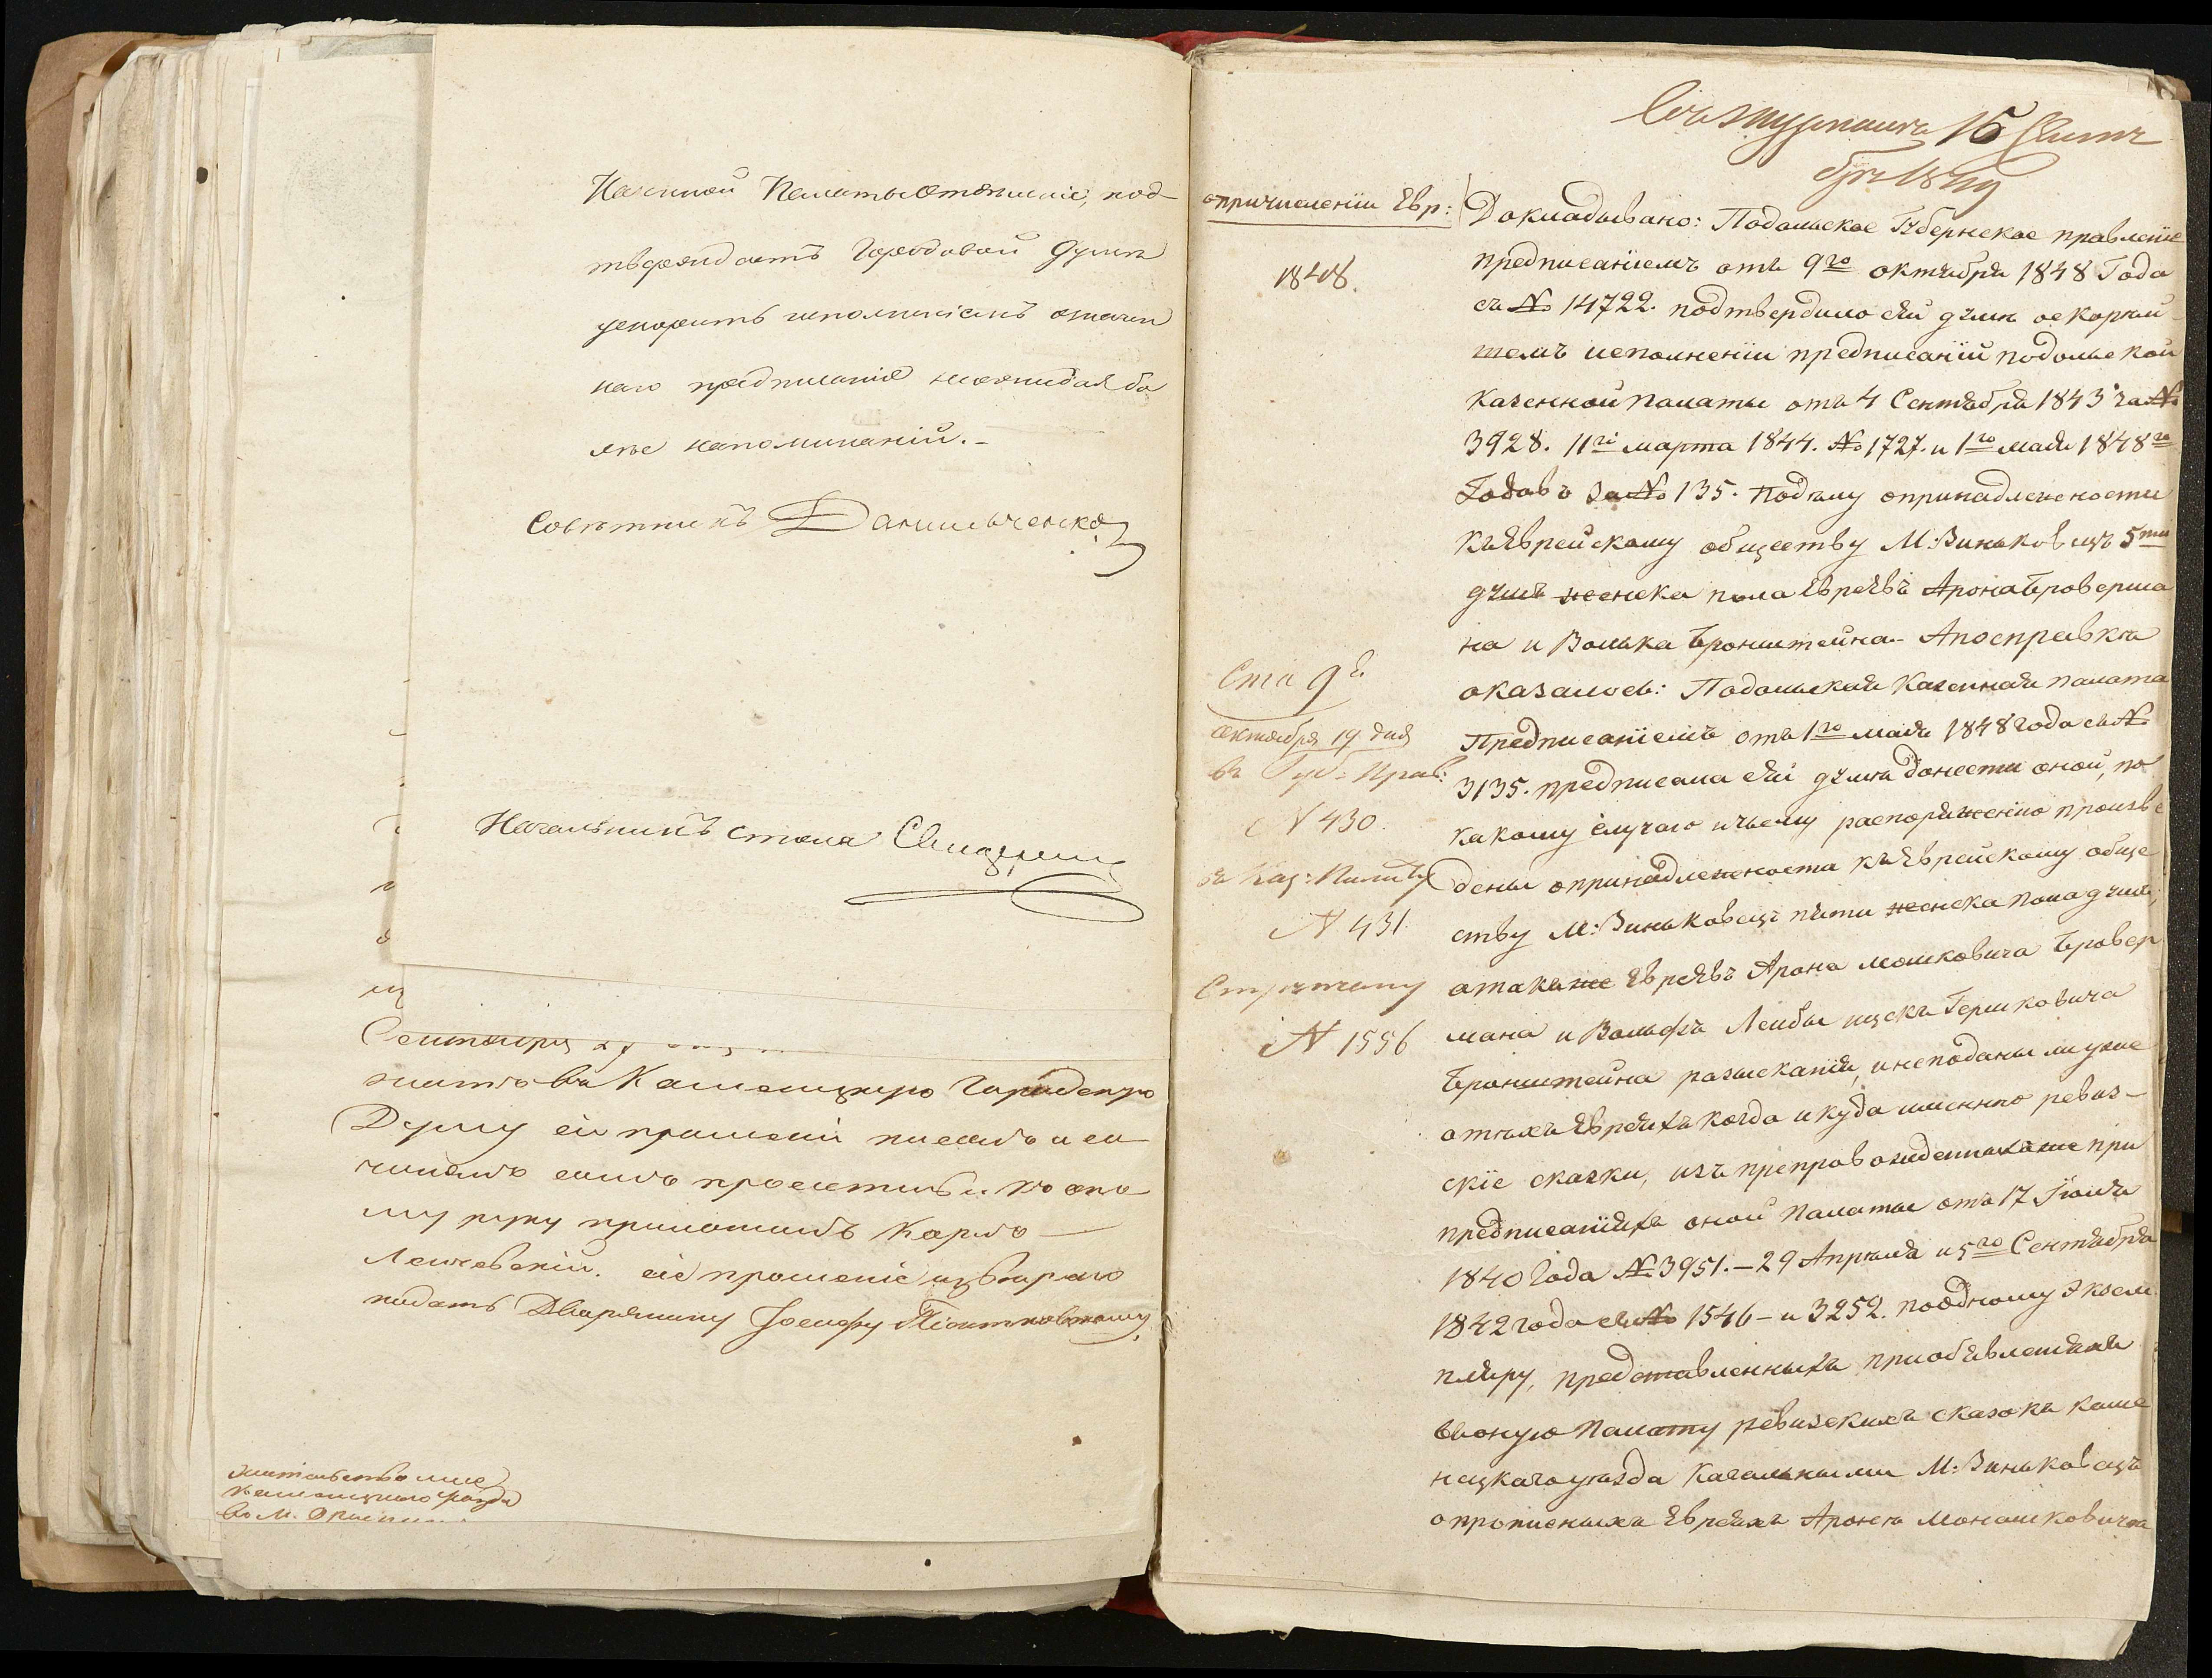 Казенной Палаты отношенiе, под-
тверждаетъ Городовой Думе
ускорить исполненiемъ означен
наго предписанiя неожидая да
лее напоминанiй.-
Советникъ Данильченко
Начальникъ стола
Сентября
въ Каменецкую Городскую
Думу сiе прошенiе писалъ и со
чинялъ самъ проситель и къ оно
му руку приложилъ Карлъ
сiе прошенiе изверяю
подать Дворянину Iосифу
жительство мне
Каменецкого уезда
в М.
15
опричисленiи Евр:
1848.
Докладывано: Подольское Губернское правленiе
предписанiемъ отъ 9го октября 1848 Года
съ № 14722. подтвердило сей думе оскорей-
шемъ исполненiи предписанiй подольской
Казенной палаты отъ 4 Сентября 1843 за №
3928. 11го марта 1844. № 1727. и 1го мая 1848го
Годовъ за № 135. Поделу опринадлежности
къ Еврейскому обществу М: Виньковецъ 5ти
душъ женска пола Евреевъ Арона Бровермa
на и Волька Бронштейна - Апосправке
оказалось: Подольская Казенная палата
Предписанiемъ отъ 1го мая 1848 года съ №
3135. предписала сей думе донести оной, по
какому случаю ичьему распоряженiю произве
дены опринадлежности къ Еврейскому обще
ству М: Виньковецъ пяти женска пола душъ,
атакже Евреевъ Арона Мошковича Бровер
мана и Вольфъ Лейбы Ицекъ Гершковича
Бронштейна разыскания, инеподаны ли уже
отехъ Евреяхъ когда икуда именно ревиз-
скiе сказки, изъ препровожденныхъже при
предписанiяхъ оной палаты отъ 17 Iюля
1840 Года № 3951. - 29 Апреля и 5го Сентября
1842 года съ № 1546 - и 3252. поодному экзем
пляру, представленныхъ приобъявленiяхъ
въ оную Палату ревизскихъ сказокъ каме
нецкаго уезда Кагальными М: Виньковецъ
опрописныхъ Евреяхъ Ароне Моношковиче
Ста 9й
Октября 19 дня
въ Губ: Прав:
№ 430.
въ Каз: Палату
№ 431
№ 1556